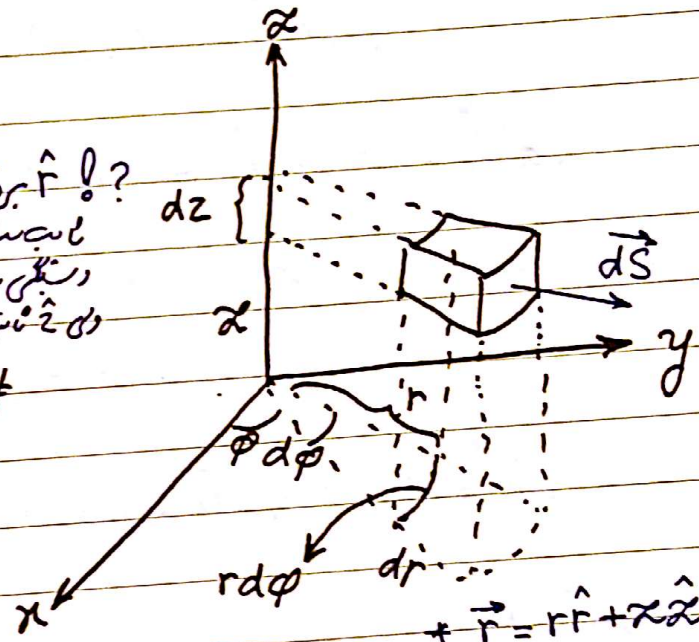 z
r̂ !?
dz
dS⃗
z
y
r
φ dφ
rdφ dr
x
+ r⃗ = r r̂ + z ẑ